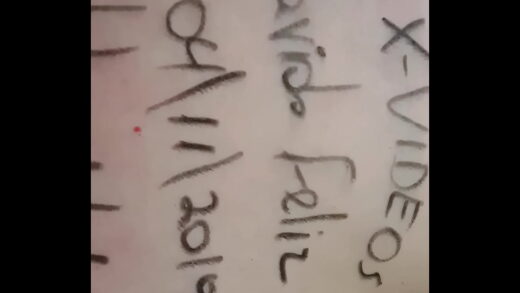 X-VIDEOS
avida Feliz
04/11/201